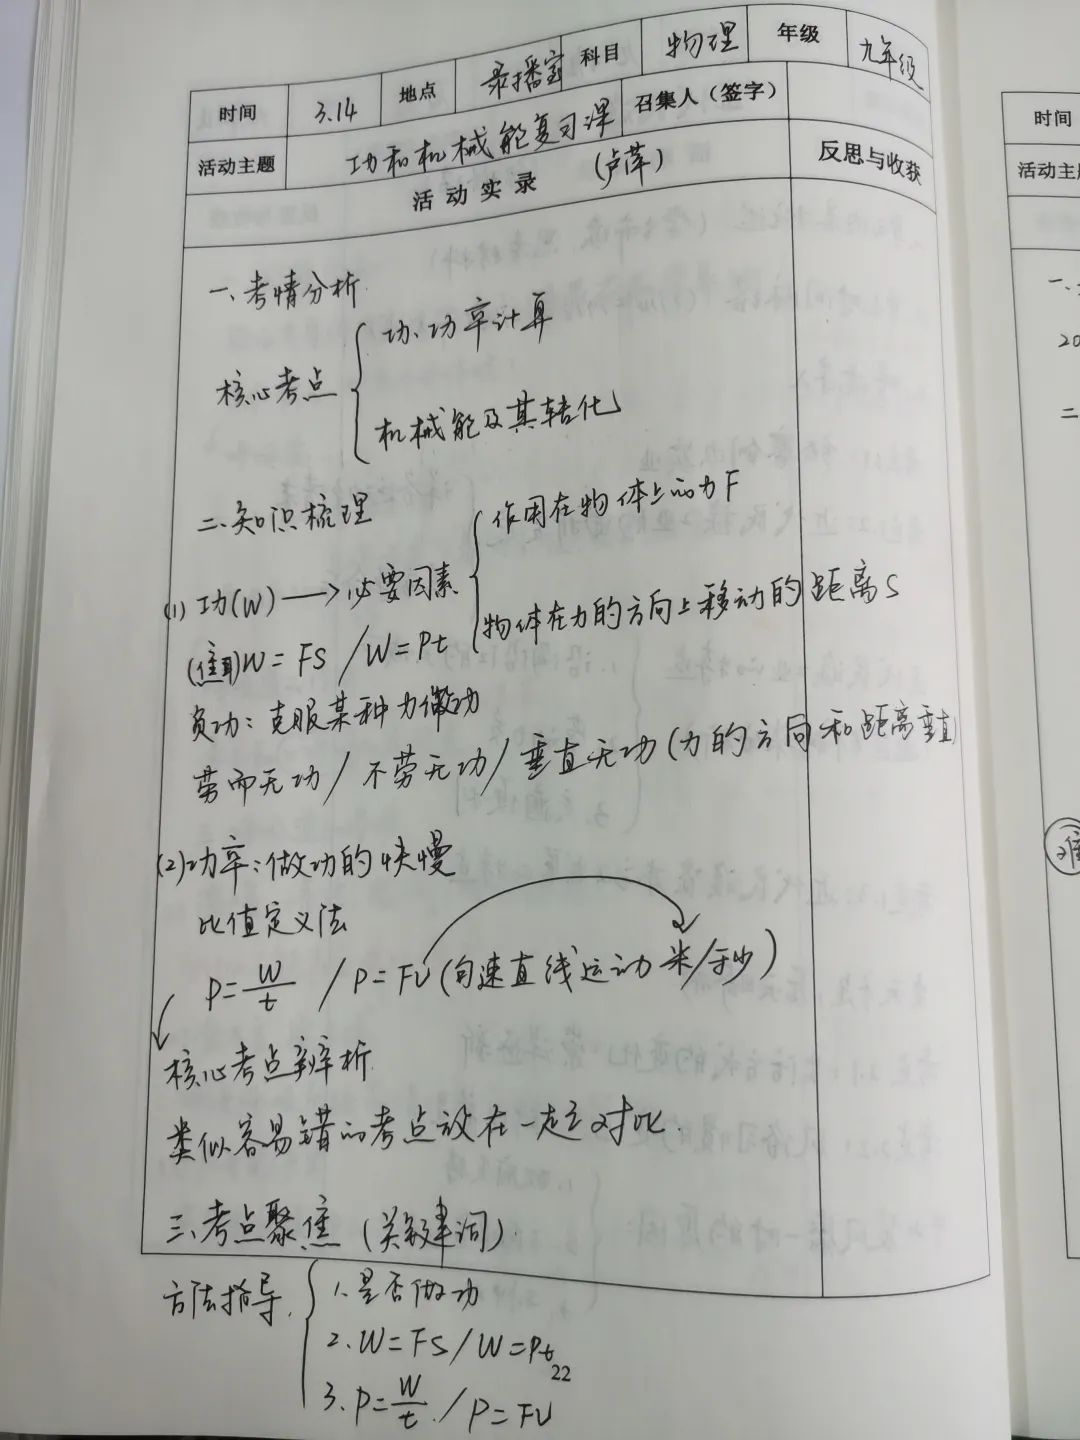 时间 3.14 地点 录播室 科目 物理 年级 九年级
活动主题 功和机械能复习课 召集人（签字）
活动实录 (卢萍) 反思与收获
一、考情分析
核心考点 { 功、功率计算
机械能及其转化
二、知识梳理
(1) 功(W) → 必要因素 { 作用在物体上的力F
物体在力的方向上移动的距离S
(焦耳)W=FS / W=Pt
负功：克服某种力做功
劳而无功 / 不劳无功 / 垂直无功 (力的方向和距离垂直)
(2) 功率：做功的快慢
比值定义法
P=W/t / P=Fv (匀速直线运动 米/秒)
核心考点辨析
类似容易错的考点放在一起对比.
三、考点聚焦 (关键词)
方法指导 { 1.是否做功
2. W=FS / W=Pt
22
3. P=W/t / P=Fv
时间
活动主题
一、
20
二
难